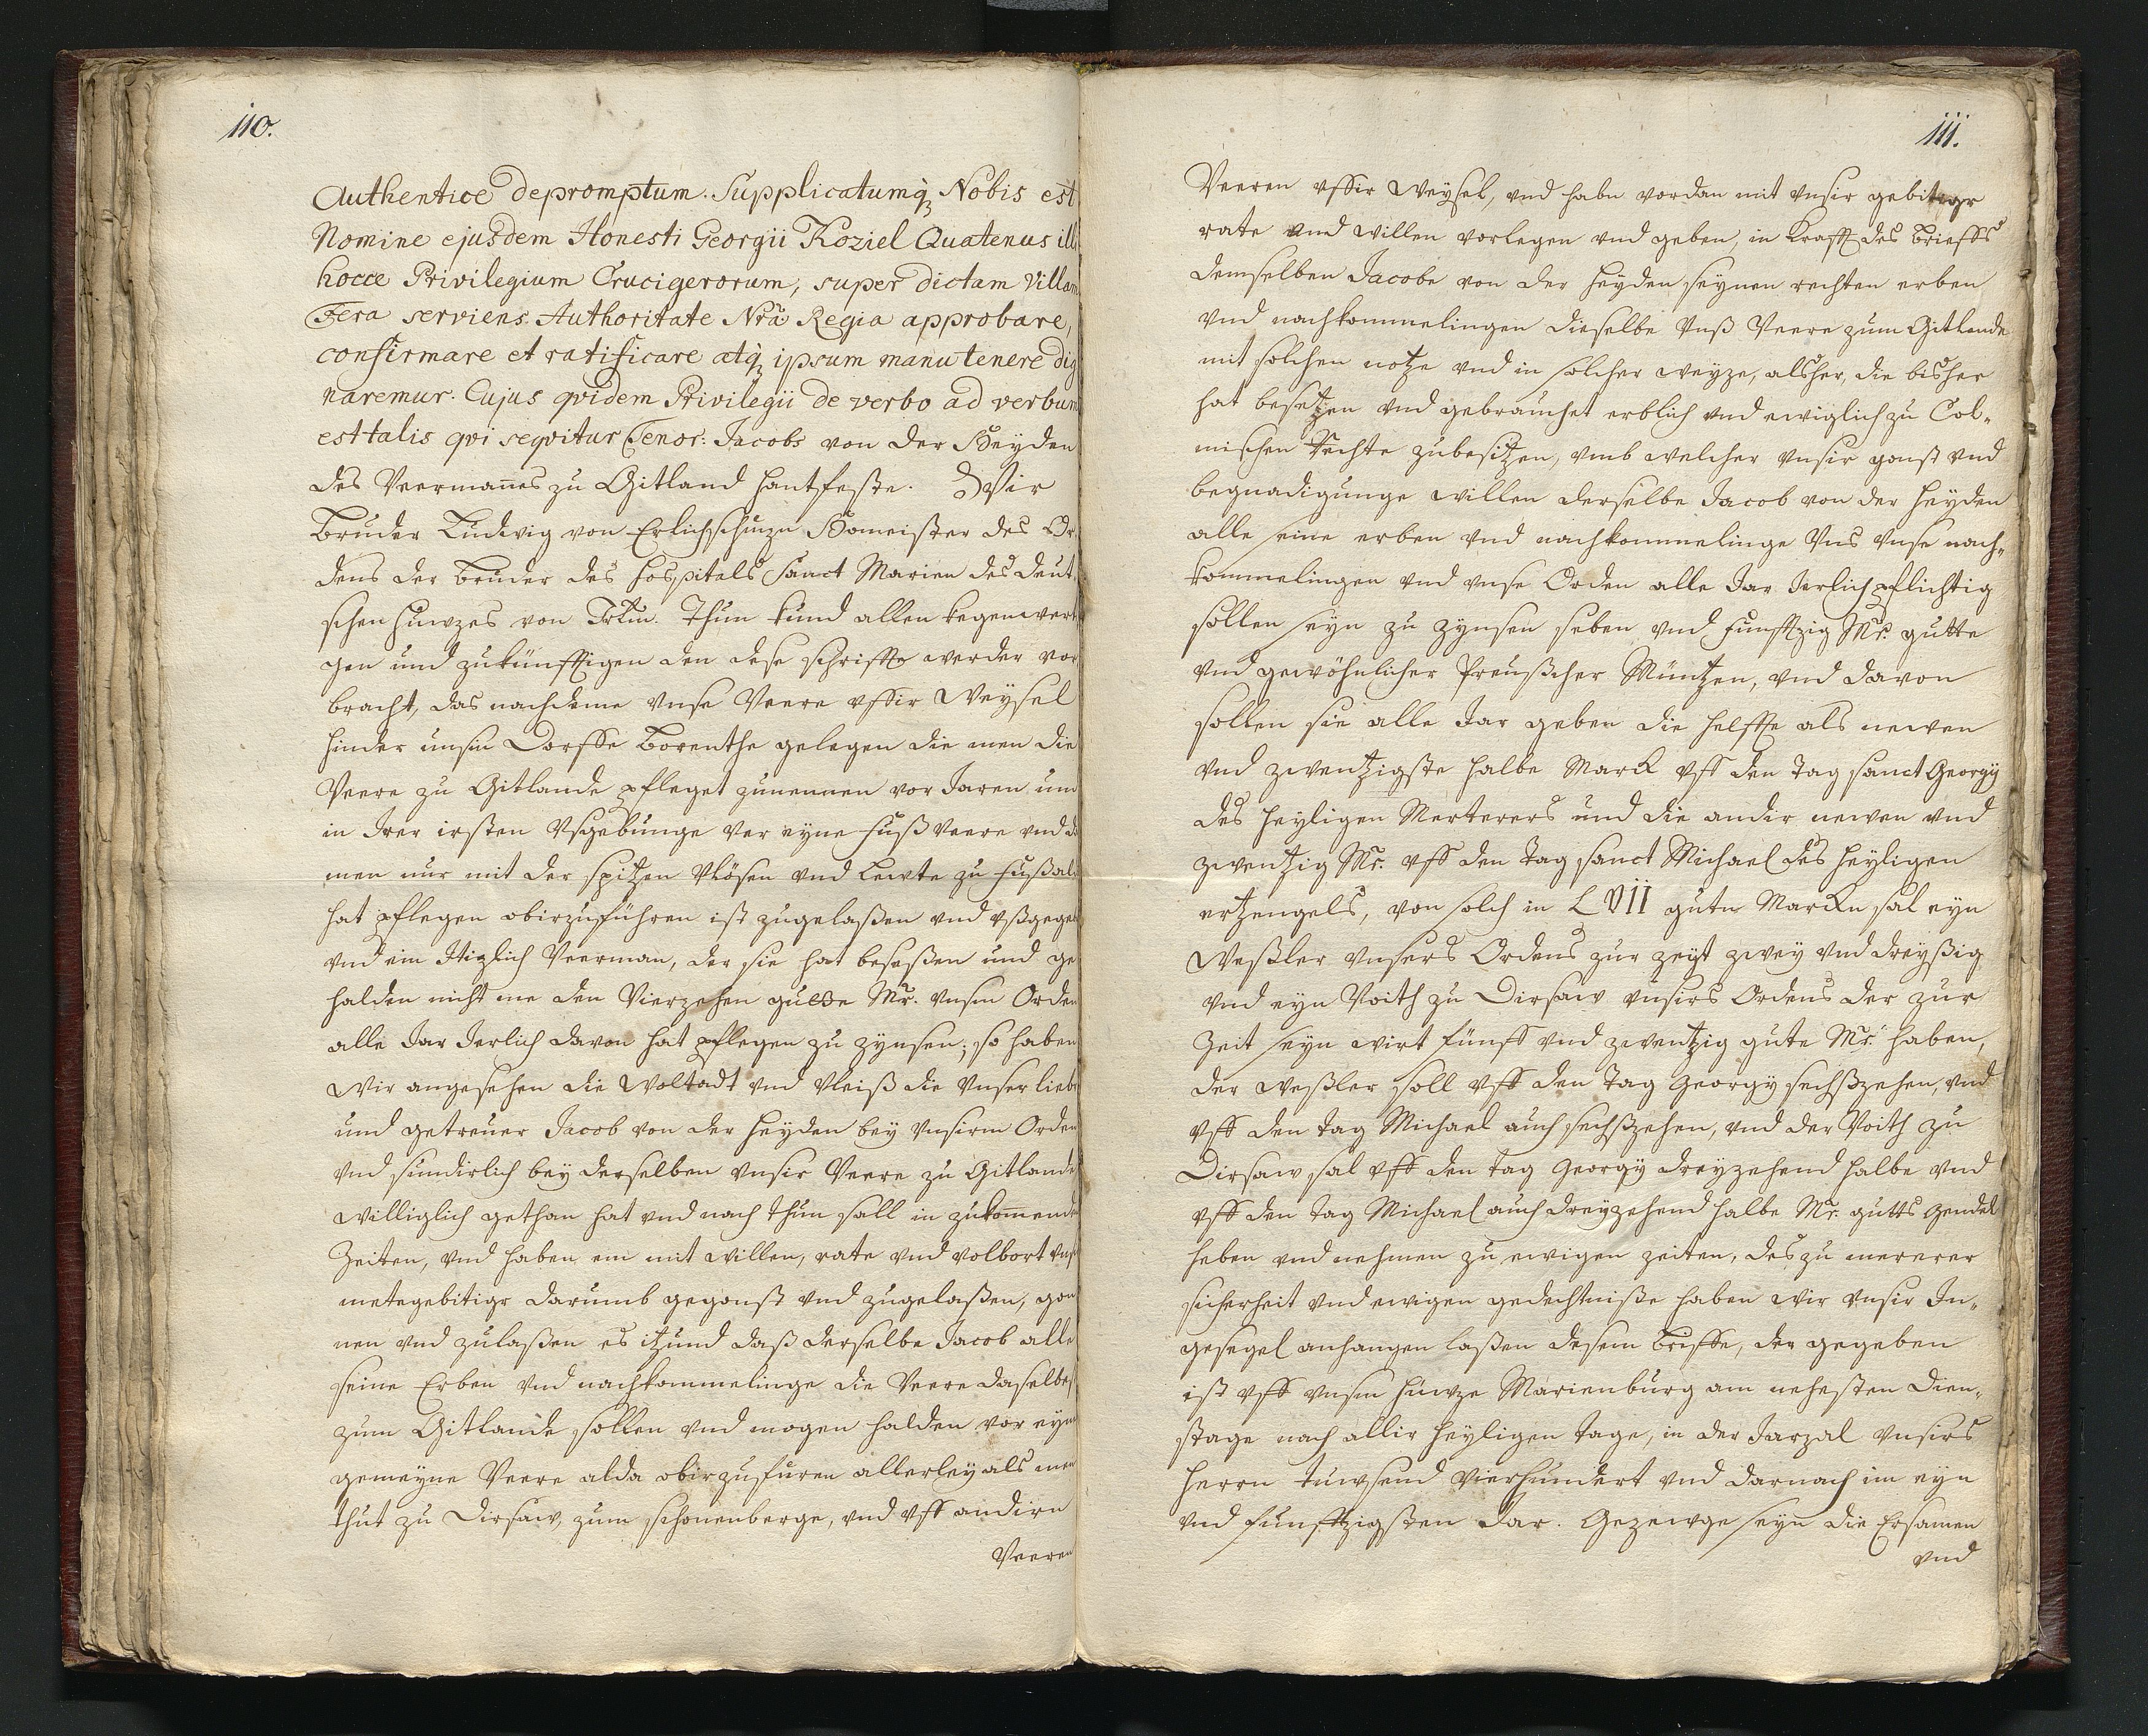 110.
Authentice depromptum. Supplicatumq; Nobis est
Nomine ejusdem Honesti Georgii Koziel Quatenus ill
hocce Privilegium Crucigerorum, super dictam Villam
Fera serviens Authoritate Nrã Regia approbare,
confirmare et ratificare atq; ipsum manutenere dig
naremur. Cujus qvidem Privilegii de verbo ad verbum
est talis qvi seqvitur Tenor: Jacobs von der Heyden
des Veermañes zu Gitland hantfeste. Wir
Bruder Ludwig von Erlichshuzn Homeister des Or
dens der Bruder des Hospitals Sanct Marien des deut
schen huwzes von Thun kund allen kegenwert
gen und zukünfftigen den dese schriffte werden vor
bracht, das nachdeme vnse Veere vffir Weysel
hinder unsin Dorffe Borenthe gelegen die men die
Veere zu Gitlande pfleget zunennen vor Jaren und
in Irer irsten Vsgebunge ver eyne fuß Veere vnd d
men nur mit der spitzen Vlösen vnd Lewte zu fuß al
hat pflegen obirzuführen ist zugelaßen vnd vßgege
vnd ein Itzlich Veerman, der sie hat beseßen und ge
halden nicht me den Vierzehen gutte Mr. vnsm Orden
alle Jar Jerlich davon hat pflegen zu zynsen; so haben
Wir angesehen die Woltadt vnd Vleiß die Vnser liebe
und getreuer Jacob von der Heyden bey Vnsirm Orden
vnd sundirlich bey derselben vnsir Veere zu Gitlande
williglich gethan hat vnd nach thun sall in zukom̃ende
Zeiten, vnd haben em mit willen, rate vnd volbort vns
metegebitigr darumb gegonst vnd zugelaßen, gon
nen vnd zulaßen es itzund daß derselbe Jacob alle
seine Erben vnd nachkommelinge die Veere daselbes
zum Gitlande sollen vnd mogen halden vor eyne
gemeyne Veere alda obirzufuren allerley als men
thut zu Dirsaw, zum schonenberge, vnd vff andirn
Veeren
111.
Veeren vffir Weysel, vnd habn vordan mit vnsir gebitigr
rate vnd willen vorlegen vnd geben, in Krafft des Brieffs
demselben Jacobe von der Heyden seynen rechten erben
vnd nachkommelingen dieselbe Vnß Veere zum Gitlande
mit solchen notze vnd in solcher weyze, alsher, die bisher
hat besetzen vnd gebrauchet erblich vnd ewiglich zu Col-
mischen Rechte zubesitzen, vmb welcher vnsir gonst vnd
begnadigunge willen derselbe Jacob von der Heyden
alle seine erben vnd nachkommelinge Vns vnse nach-
kommelingen vnd vnse Orden alle Jar Jerlich pflichtig
sollen seyn zu zynsen seben vnd funfftzig Mr. gutte
vnd gewöhnlicher Preußcher Müntzen, vnd davon
sollen sie alle Jar geben die helffte als newen
vnd zwentzigste halbe Mark vff den Tag sanct Georgy
des Heyligen Merterers und die andir newen vnd
zwentzig Mr. vff den Tag sanct Michael des Heyligen
ertzengels, von solch in LVII gutn Markn sal eyn
Weßler vnsers Ordens zur zeyt zwey vnd dreyßig
vnd eyn Voith zu Dirsaw vnsirs Ordens der zur
Zeit seyn wirt fünff vnd zwentzig gute Mr. haben,
der Weßler soll vff den Tag Georgy sechßzehen, vnd
vff den tag Michael auch sechßzehen, vnd der Voith zu
Dirsaw sal vff den tag Georgy dreyzehend halbe vnd
vff den Tag Michael auch dreyzehend halbe Mr. gutts
heben vnd nehmen zu ewigen zeiten, des zu mererer
sicherheit vnd ewigen gedechtniße haben wir vnsir In-
gesegel anhangen laßen desem Briffe, der gegeben
ist vff vnsm huwze Marienburg am nehesten Dien-
stage nach allir heyligen tage, in der Jarzal vnsirs
Herrn tuwsend vierhundert vnd darnach im eyn
vnd funfftzigsten Jar. Gezewge seyn die Ersamen
vnd